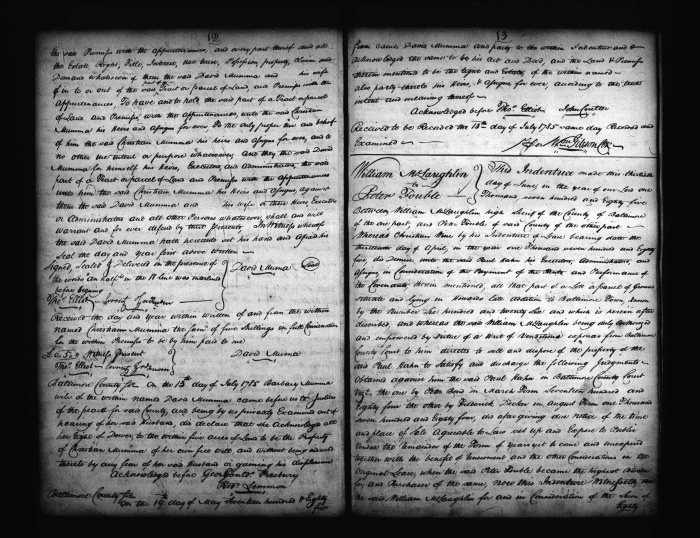 12
the said Premises with the appurtenances, and every part thereof and all
the Estate Right, Title, Interest, use trust, Possession property, Claim and
Demand whatsoever of them the said David Mumma and his wife
of in to or out of the said Tract or parcel of Land, and Premises with the
Appurtenances, To have and to hold the said part of a Tract or parcel
of Land and Premises with the appurtenances, unto the said Christian
Mumma his Heirs and Assigns for ever, to the only proper use and behoof
of him the said Christian Mumma his Heirs and Assigns for ever, and to
no other use intent or purpose whatsoever, And they the said David
Mumma for himself his Heirs, Executors, and Administrators, the said
part of a Tract or parcel of Land and Premises with the Appurtenances
unto him the said Christian Mumma his Heirs and Assigns, against
them the said David Mumma and his wife or their Heirs Executors
or Administrators and all other Persons whatsoever, shall and will
warrant and for ever defend by these Presents, In Witness whereof
the said David Mumma hath hereunto set his hand and affixed his
Seal the day and year first above written
Signed Sealed & Delivered in the presence of
the words in the line was
before signing
David Mumma
Thos. Elliot
Received the day and year within written of and from the within
named Christian Mumma the Sum of five Shillings in full Consideration
for the within Premises to be by him paid me
£0.5.0 Witness Present
David Mumma
Thos. Elliot
Baltimore County Sct. On the 13th day of July 1785 Barbary Mumma
wife of the within named David Mumma came before us two Justices
of the peace for said County, and being by us privately Examined out of
hearing of her said Husband, did declare that she Acknowledged all
her Right of Dower, to the within five acres of Land to be the Property
of Christian Mumma of her own free will and without being induced
thereto by any fear of her said Husband or gaining his displeasure
Acknowledged before Geo. Gouldh. Presbury
Robt. Lemmon
Baltimore County Sct.
On the 19th day of May Seventeen hundred & Eighty
five
13
from came David Mumma and party to the within Indenture and
acknowledged the same to be his Act and Deed, and the Land & Premises
therein mentioned to be the right and Estate of the within named
also party thereto his Heirs, & Assigns, for ever according to the true
intent and meaning thereof
Acknowledged before Thos. Elliot John Coulter
Received to be Recorded the 13th day of July 1785 same day Recorded and
Examined
Per Wm Gibson Clk
William McLaughlin
to
Peter Fouble
This Indenture made this thirtieth
day of June, in the year of our Lord one
Thousand seven hundred and Eighty five
Between William McLaughlin high Sheriff of the County of Baltimore
of the one part, and Peter Fouble of said County of the other part
Whereas Christian Mine by his Indenture of Lease bearing date the
thirteenth day of April, in the year one Thousand seven hundred and Eighty
five, did Demise unto the said Paul Hahn his Executors, Administrators, and
Assigns, in Consideration of the Payment of the Rents, and Performance of
the Covenants therein mentioned, all that part of a Lot or parcel of Ground
situate and lying in Howards late addition to Baltimore Town, known
by the Number Six hundred and twenty Six and which is herein after
described, and whereas the said William McLaughlin being duly authorized
and impowered by Virtue of a Writ of Venditioni exponas from Baltimore
County Court to him directed to sell and dispose of the property of the
said Paul Hahn to Satisfy and discharge the following Judgments
Obtained against him the said Paul Hahn in Baltimore County Court
Vizt. the one by Peter Bond in March Term Seventeen hundred and
Eighty four the other by Frederick Decker in August Term one Thousand
seven hundred and Eighty four, did after giving due notice of the time
and place of Sale Agreeable to Law set up and Expose to Public
Vendue the Remainder of the Term of years yet to come and unexpired
together with the benefit of Renewment and the other Considerations in the
Original Lease, when the said Peter Fouble became the highest Bidder
for, and Purchaser of the same, Now this Indenture Witnesseth that
the said, William McLaughlin for and in Consideration of the Sum of
Eighty